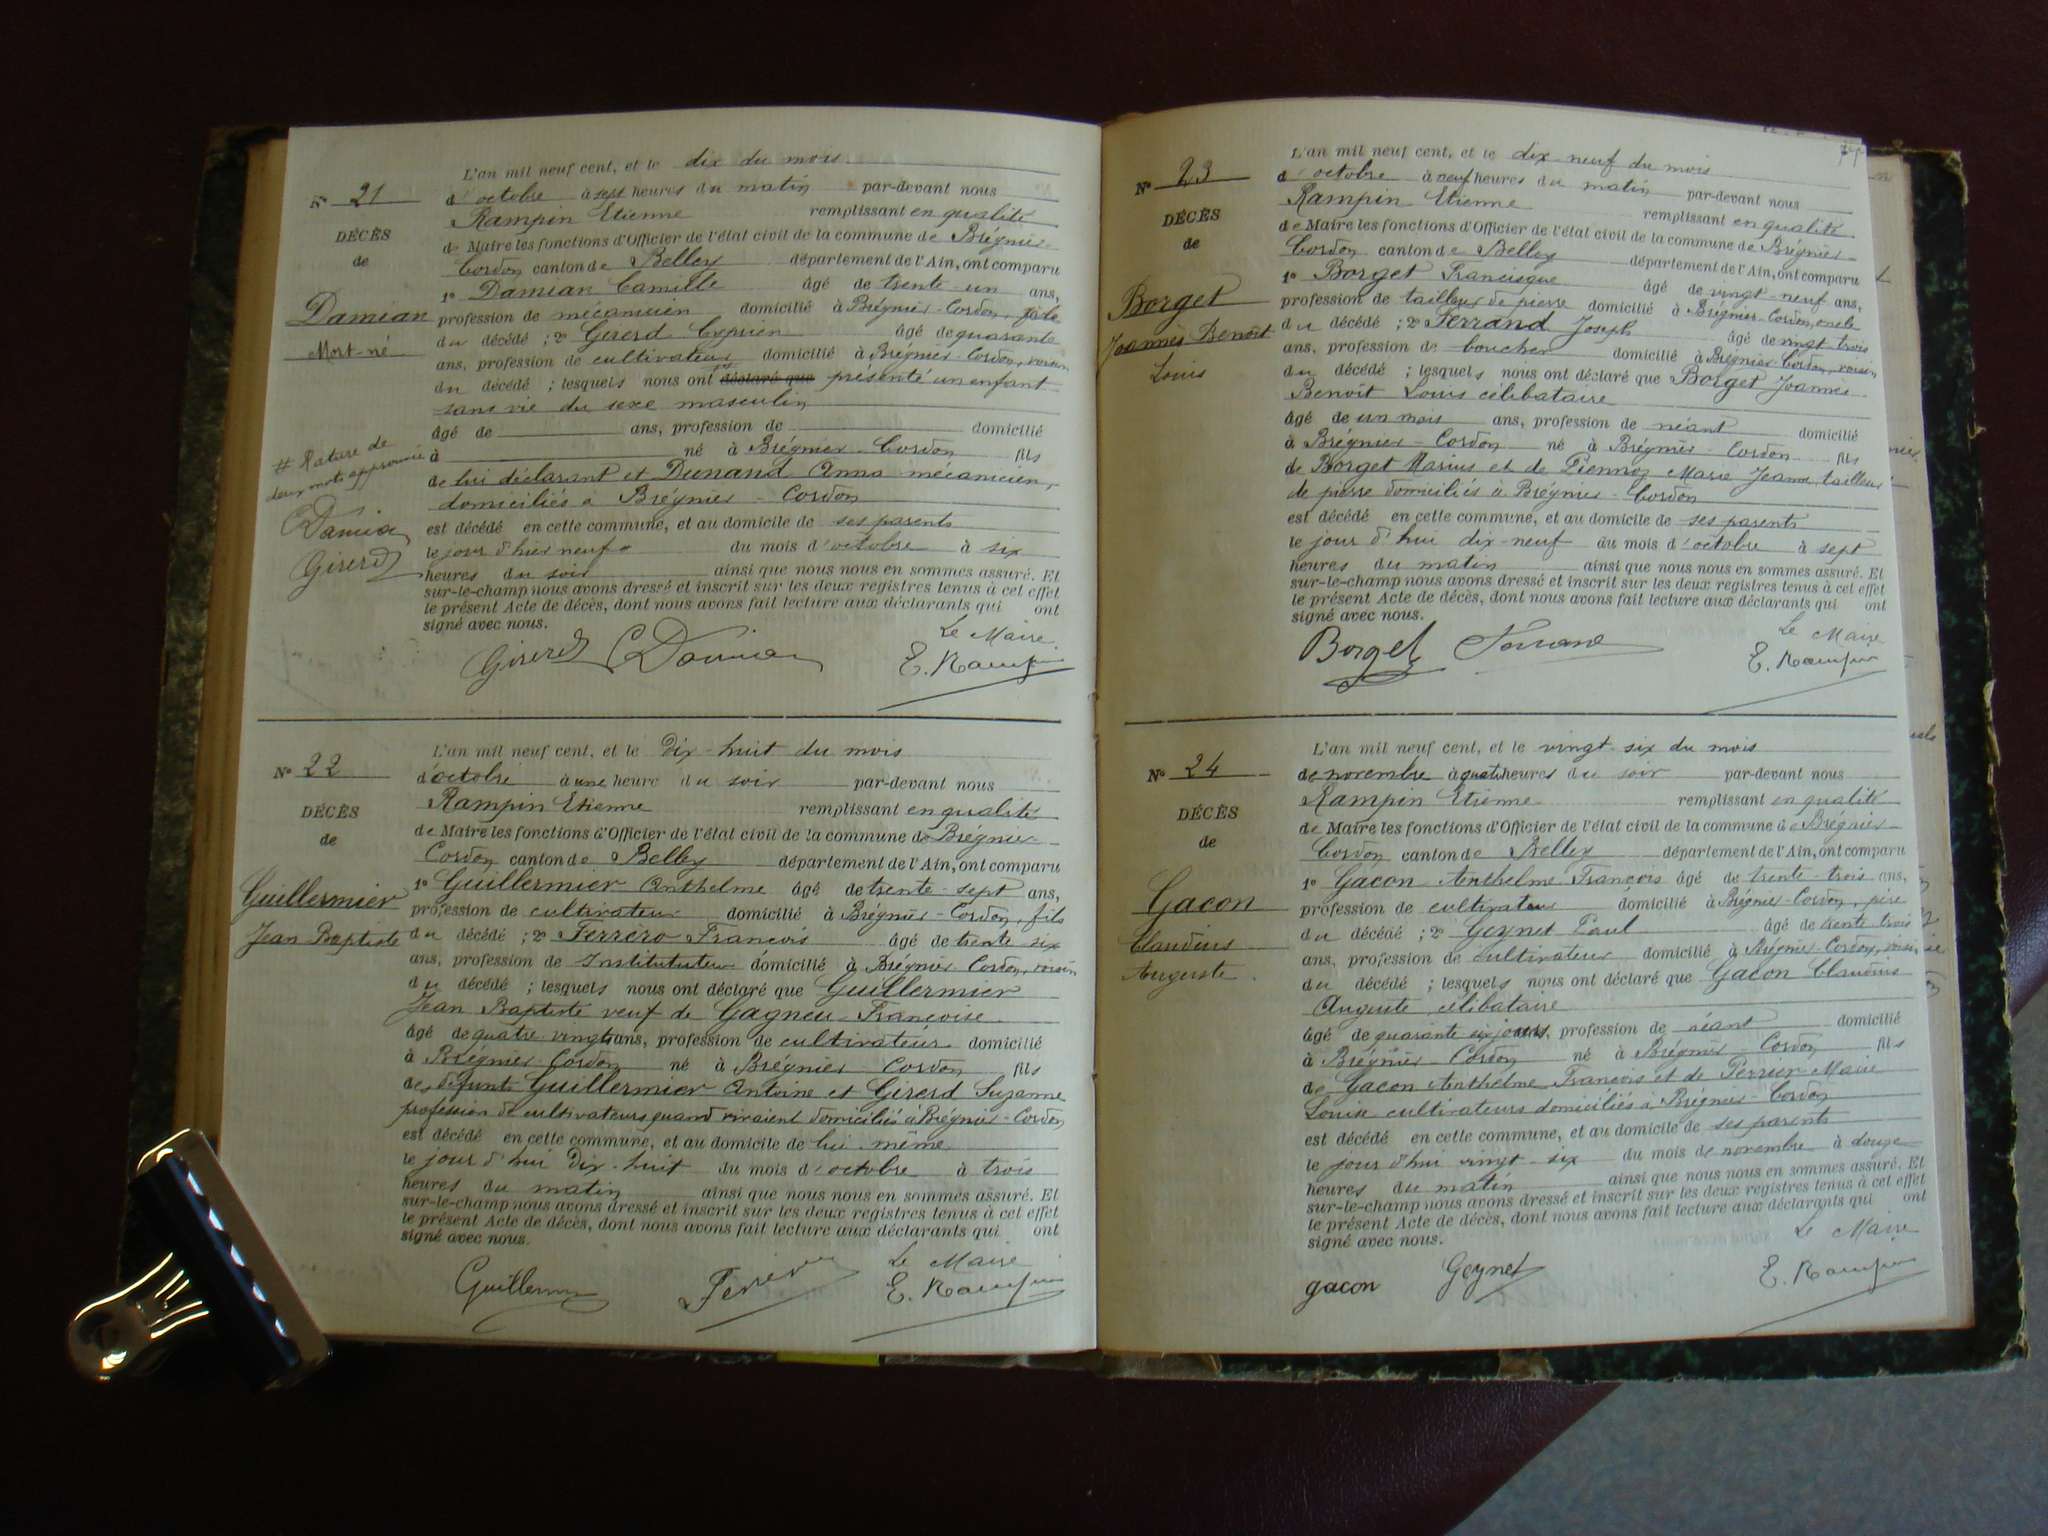 N° 21
DÉCÈS
de
Damian
Mort-né
# Rature de
deux mots approuvée
C Damian
Girerd
L'an mil neuf cent, et le dix du mois
d'octobre à sept heures du matin par-devant nous
Rampin Etienne remplissant en qualité
de Maire les fonctions d'Officier de l'état civil de la commune de Brégnier-
Cordon canton de Belley département de l'Ain, ont comparu
1° Damian Camille âgé de trente-un ans,
profession de mécanicien domicilié à Brégnier-Cordon,
du décédé ; 2° Girerd Cyprien âgé de quarante
ans, profession de cultivateur domicilié à Brégnier-Cordon, voisin
du décédé ; lesquels nous ont déclaré que # présenté un enfant
sans vie du sexe masculin
âgé de ans, profession de domicilié
à né à Brégnier-Cordon fils
de lui déclarant et Dunand Anna mécanicien,
domiciliés à Brégnier-Cordon
est décédé en cette commune, et au domicile de ses parents
le jour d'hier neuf du mois d'octobre à six
heures du soir ainsi que nous nous en sommes assuré. Et
sur-le-champ nous avons dressé et inscrit sur les deux registres tenus à cet effet
le présent Acte de décès, dont nous avons fait lecture aux déclarants qui ont
signé avec nous.
Le Maire
Girerd C Damian E. Rampin
N° 22
DÉCÈS
de
Guillermier
Jean Baptiste
L'an mil neuf cent, et le Dix-huit du mois
d'octobre à une heure du soir par-devant nous
Rampin Etienne remplissant en qualité
de Maire les fonctions d'Officier de l'état civil de la commune de Brégnier-
Cordon canton de Belley département de l'Ain, ont comparu
1° Guillermier Anthelme âgé de trente-sept ans,
profession de cultivateur domicilié à Brégnier-Cordon, fils
du décédé ; 2° Ferrero François âgé de trente six
ans, profession de Instituteur domicilié à Brégnier-Cordon, voisin
du décédé ; lesquels nous ont déclaré que Guillermier
Jean Baptiste veuf de Gagneu Françoise
âgé de quatre vingts ans, profession de cultivateur domicilié
à Brégnier-Cordon né à Brégnier-Cordon fils
de défunts Guillermier Antoine et Girerd Suzanne
profession de cultivateurs quand vivaient domiciliés à Brégnier-Cordon
est décédé en cette commune, et au domicile de lui-même
le jour d'hui Dix-huit du mois d'octobre à trois
heures du matin ainsi que nous nous en sommes assuré. Et
sur-le-champ nous avons dressé et inscrit sur les deux registres tenus à cet effet
le présent Acte de décès, dont nous avons fait lecture aux déclarants qui ont
signé avec nous.
Le Maire
Guillermier Ferrero E. Rampin
N° 23
DÉCÈS
de
Borget
Joannès Benoît
Louis
L'an mil neuf cent, et le dix-neuf du mois
d'octobre à neuf heures du matin par-devant nous
Rampin Etienne remplissant en qualité
de Maire les fonctions d'Officier de l'état civil de la commune de Brégnier-
Cordon canton de Belley département de l'Ain, ont comparu
1° Borget Francisque âgé de vingt-neuf ans,
profession de tailleur de pierre domicilié à Brégnier-Cordon, oncle
du décédé ; 2° Ferrand Joseph âgé de vingt-trois
ans, profession de boucher domicilié à Brégnier-Cordon, voisin
du décédé ; lesquels nous ont déclaré que Borget Joannès
Benoît Louis célibataire
âgé de un mois ans, profession de néant domicilié
à Brégnier-Cordon né à Brégnier-Cordon fils
de Borget Marius et de Piennoz Marie Jeanne tailleur
de pierre domiciliés à Brégnier-Cordon
est décédé en cette commune, et au domicile de ses parents
le jour d'hui dix-neuf du mois d'octobre à sept
heures du matin ainsi que nous nous en sommes assuré. Et
sur-le-champ nous avons dressé et inscrit sur les deux registres tenus à cet effet
le présent Acte de décès, dont nous avons fait lecture aux déclarants qui ont
signé avec nous.
Le Maire
Borget Ferrand E. Rampin
N° 24
DÉCÈS
de
Gacon
Claudius
Auguste
L'an mil neuf cent, et le vingt-six du mois
de novembre à quatre heures du soir par-devant nous
Rampin Etienne remplissant en qualité
de Maire les fonctions d'Officier de l'état civil de la commune de Brégnier-
Cordon canton de Belley département de l'Ain, ont comparu
1° Gacon Anthelme François âgé de trente-trois ans,
profession de cultivateur domicilié à Brégnier-Cordon, père
du décédé ; 2° Geynet Paul âgé de trente trois
ans, profession de cultivateur domicilié à Brégnier-Cordon, voisin
du décédé ; lesquels nous ont déclaré que Gacon Claudius
Auguste célibataire
âgé de quarante six jours, profession de néant domicilié
à Brégnier-Cordon né à Brégnier-Cordon fils
de Gacon Anthelme François et de Perrier Marie
Louise cultivateurs domiciliés à Brégnier-Cordon
est décédé en cette commune, et au domicile de ses parents
le jour d'hui vingt-six du mois de novembre à douze
heures du matin ainsi que nous nous en sommes assuré. Et
sur-le-champ nous avons dressé et inscrit sur les deux registres tenus à cet effet
le présent Acte de décès, dont nous avons fait lecture aux déclarants qui ont
signé avec nous.
Le Maire
gacon Geynet E. Rampin